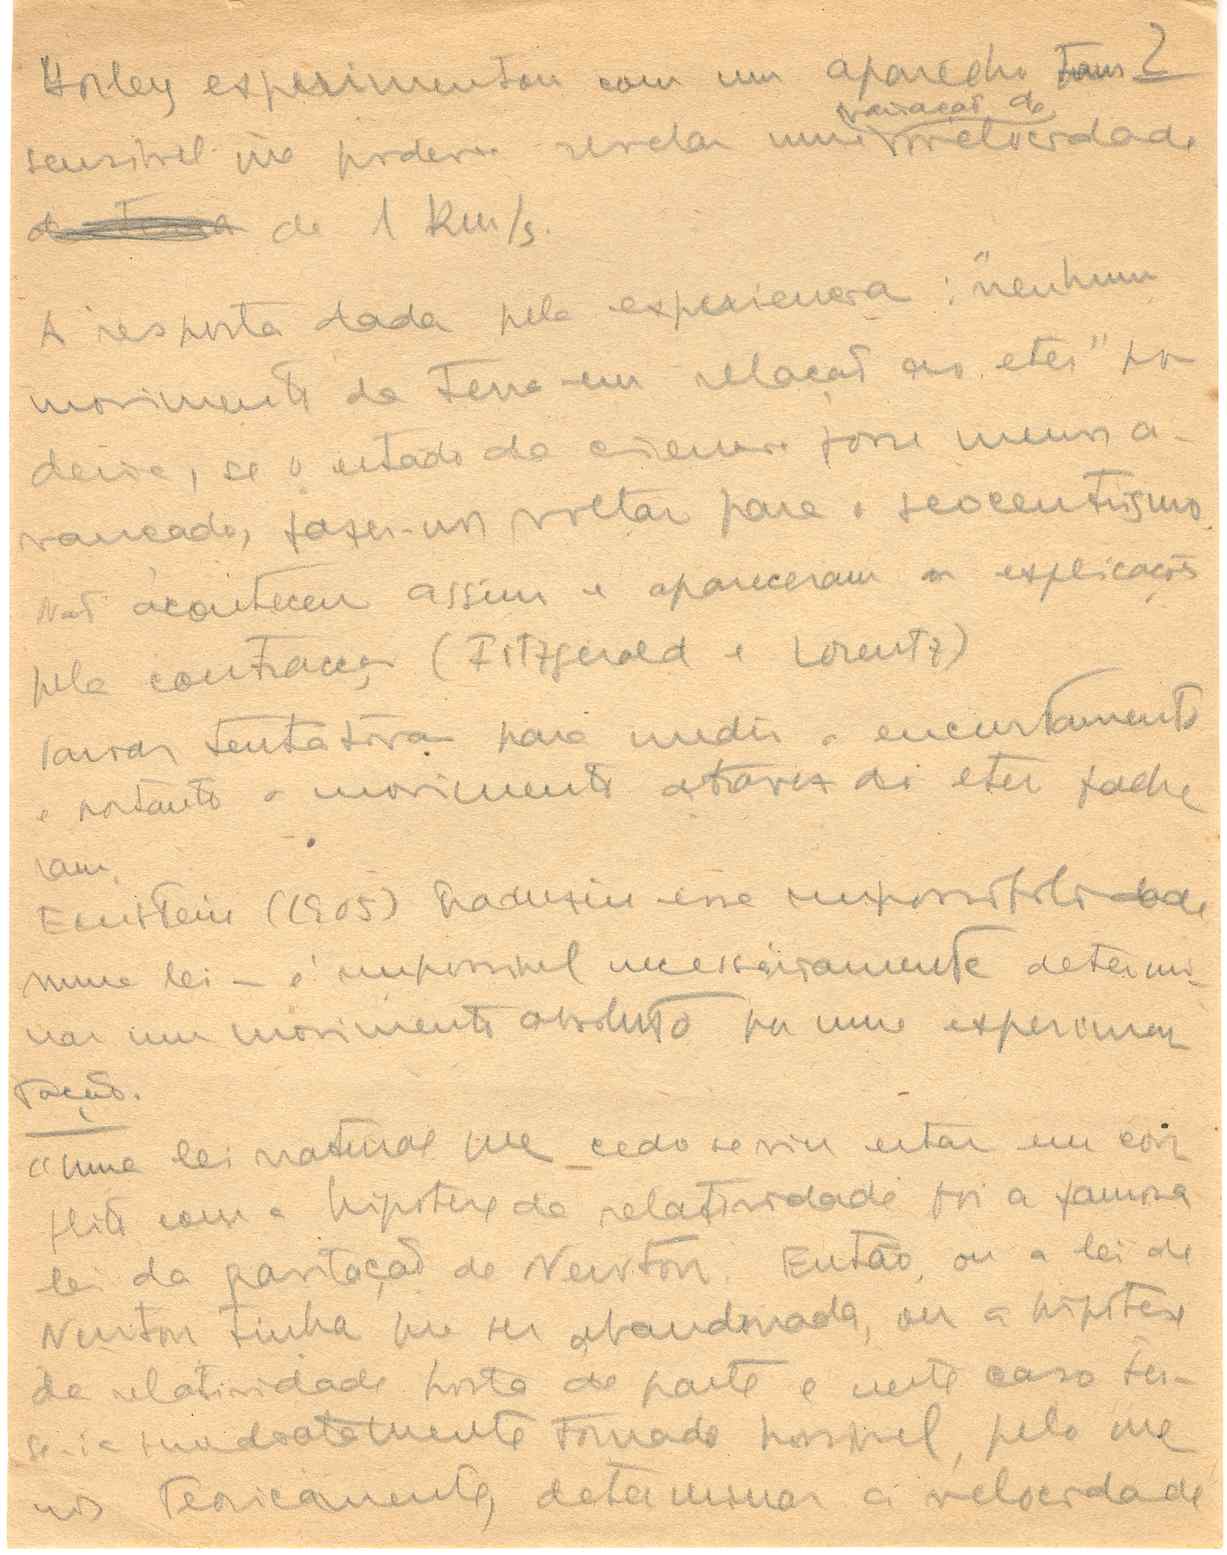 Morley experimentou com um aparelho tam 2
sensivel que poderia revelar uma variação de velocidade
da Terra de 1 Km/s.
A resposta dada pela experiencia : "nenhum
movimento da Terra em relação ao eter" po-
deria, se o estado da ciencia fosse menos a-
vançado, fazer-nos voltar para o geocentrismo.
Naõ aconteceu assim e apareceram as explicações
pela contracção (Fitzgerald e Lorentz)
Varias tentativas para medir o encurtamento
e portanto o movimento atravez do eter falha
ram.
Einstein (1905) traduziu essa impossibilidade
numa lei – é impossivel necessáriamente determi-
nar um movimento absoluto por uma experimen
tação.
"Uma lei natural que cedo se viu estar em con
flito com a hipotese da relatividade foi a famosa
lei da gravitação de Newton. Então, ou a lei de
Newton tinha que ser abandonada, ou a hipotese
da relatividade posta de parte e neste caso ter-
se-ia imediatamente tornado possivel, pelo me
nos teoricamente, determinar a velocidade